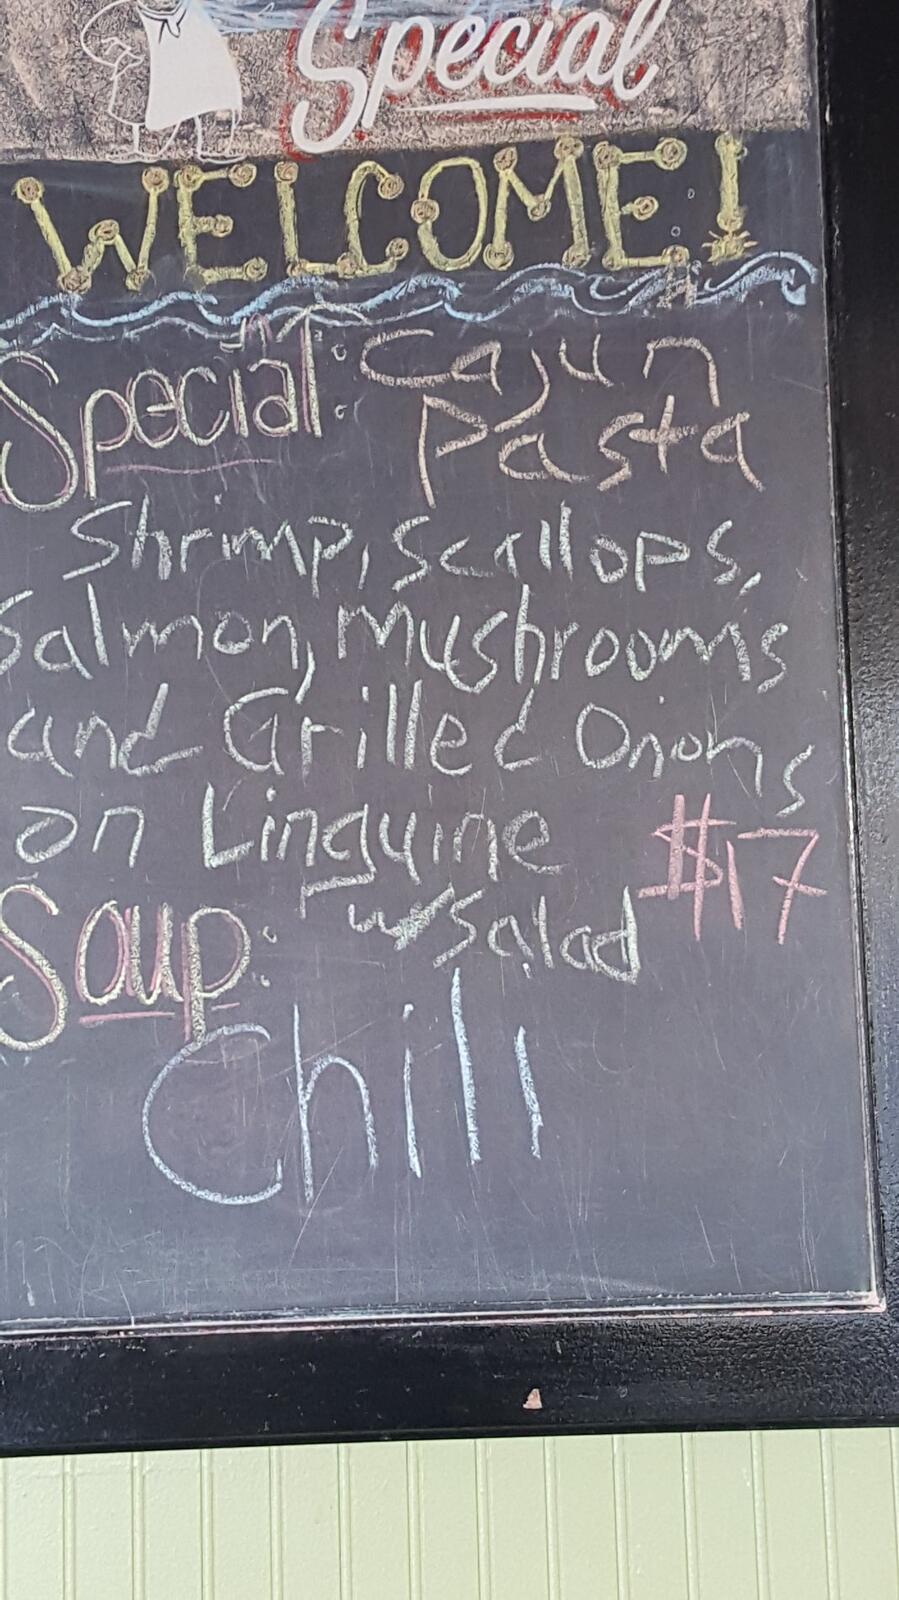 Special
WELCOME!
Special: Cajun
Pasta
Shrimp, scallops,
Salmon, Mushrooms
and Grilled Onions
on Linguine $17
w/ Salad
Soup:
Chili